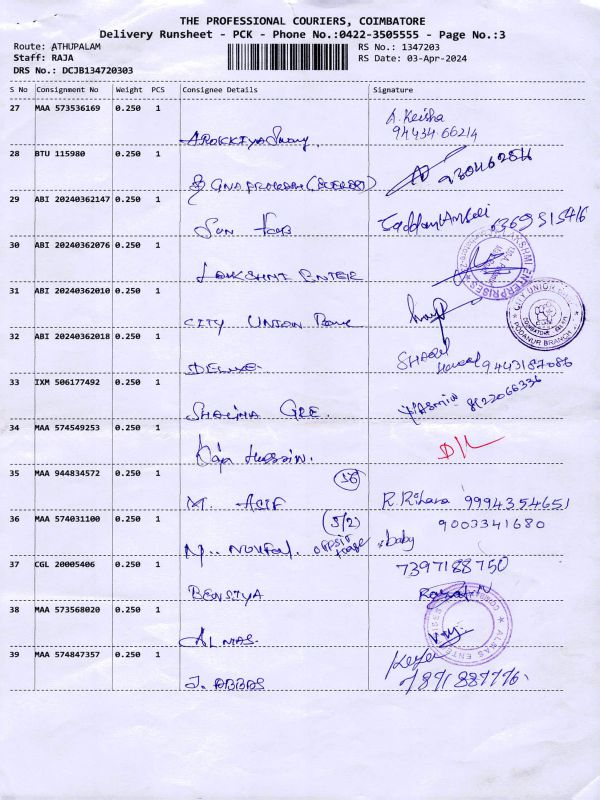 THE PROFESSIONAL COURIERS, COIMBATORE
Delivery Runsheet - PCK - Phone No.:0422-3505555 - Page No.:3
Route: ATHUPALAM RS No.: 1347203
Staff: RAJA RS Date: 03-Apr-2024
DRS No.: DCJB134720303
S No Consignment No Weight PCS Consignee Details Signature
27 MAA 573536169 0.250 1 A. Keisha
94434 66214
28 BTU 115980 0.250 1
29 ABI 20240362147 0.250 1
Sun
30 ABI 20240362076 0.250 1
LAKSHMI ENTER
31 ABI 20240362010 0.250 1
CITY UNION Bank
CITY UNION BANK
PODANUR BRANCH
32 ABI 20240362018 0.250 1
DELUXE 9443187086
33 IXM 506177492 0.250 1 Yasmin 8122066336
34 MAA 574549253 0.250 1
Raja Hussain. D/L
35 MAA 944834572 0.250 1 (56)
M. ACIF R. Rihana 9994354651
36 MAA 574031100 0.250 1 (5/2) 9003341680
M. baby
37 CGL 20005406 0.250 1 7397188750
BENSIYA
38 MAA 573568020 0.250 1
ALMAS.
39 MAA 574847357 0.250 1
J. ABBAS 7871887776